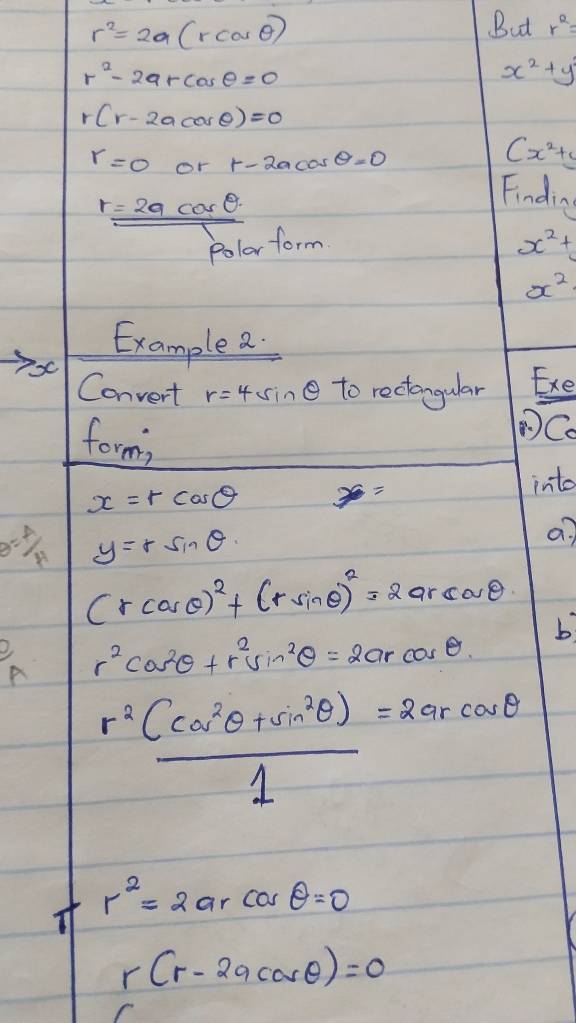 r² = 2a (r cos θ)
r² - 2ar cos θ = 0
r(r - 2a cos θ) = 0
r = 0 or r - 2a cos θ = 0
r = 2a cos θ.
Polar form.
Example 2.
→x
Convert r = 4 sin θ to rectangular
form;
x = r cos θ
y = r sin θ.
(r cos θ)² + (r sin θ)² = 2ar cos θ.
r² cos² θ + r² sin² θ = 2ar cos θ.
r² (cos² θ + sin² θ) = 2ar cos θ
1
r² = 2ar cos θ = 0
r(r - 2a cos θ) = 0
But r² =
x² + y²
(x² + y
Finding
x² +
x²
Exe
1.) Co
into
a.)
b)